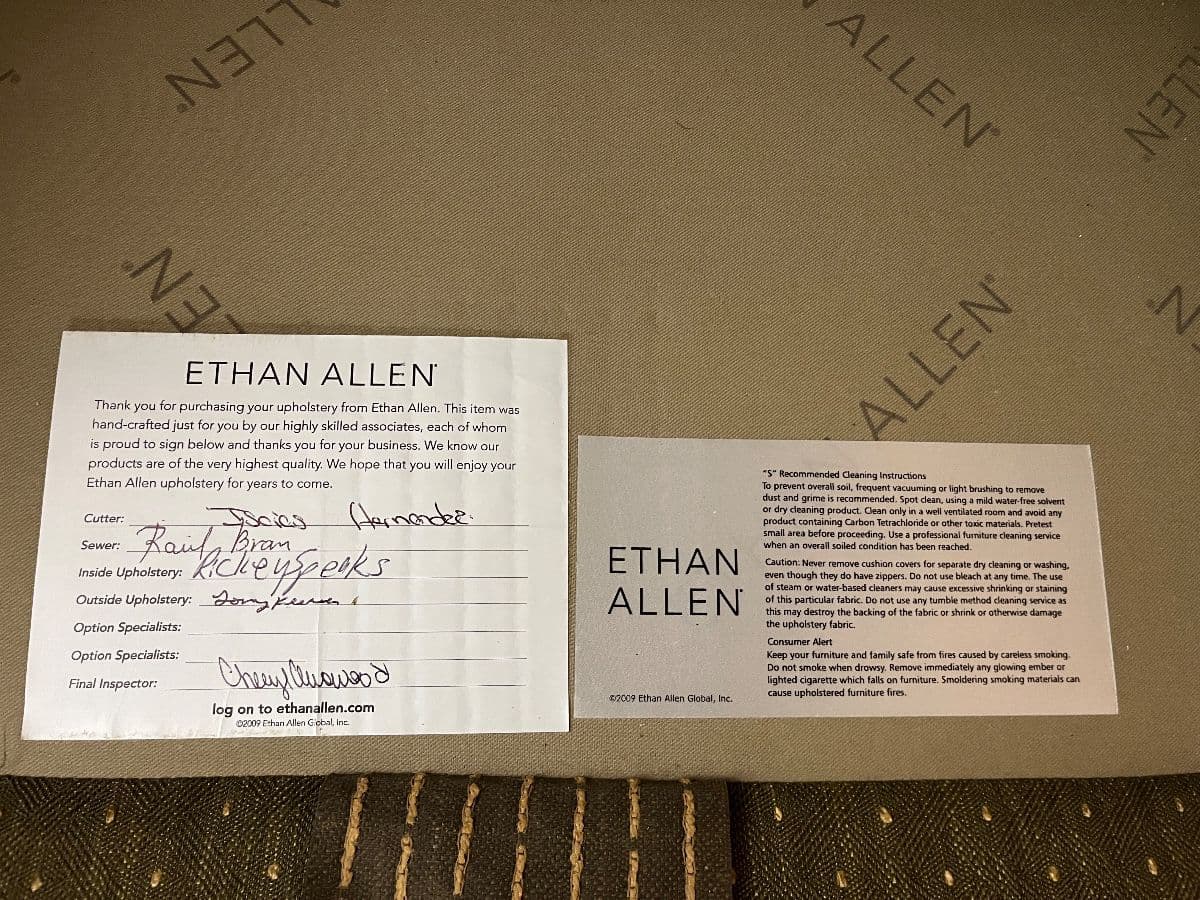 ALLEN®
ALLEN®
LLEN®
EN®
ALLEN®
ETHAN ALLEN®
Thank you for purchasing your upholstery from Ethan Allen. This item was
hand-crafted just for you by our highly skilled associates, each of whom
is proud to sign below and thanks you for your business. We know our
products are of the very highest quality. We hope that you will enjoy your
Ethan Allen upholstery for years to come.
Cutter: Isaias Hernandez.
Sewer: Raul Bran
Inside Upholstery: Rickey Speaks
Outside Upholstery: Tony
Option Specialists:
Option Specialists:
Final Inspector: Cheryl
log on to ethanallen.com
©2009 Ethan Allen Global, Inc.
ETHAN
ALLEN®
©2009 Ethan Allen Global, Inc.
"S" Recommended Cleaning Instructions
To prevent overall soil, frequent vacuuming or light brushing to remove
dust and grime is recommended. Spot clean, using a mild water-free solvent
or dry cleaning product. Clean only in a well ventilated room and avoid any
product containing Carbon Tetrachloride or other toxic materials. Pretest
small area before proceeding. Use a professional furniture cleaning service
when an overall soiled condition has been reached.
Caution: Never remove cushion covers for separate dry cleaning or washing,
even though they do have zippers. Do not use bleach at any time. The use
of steam or water-based cleaners may cause excessive shrinking or staining
of this particular fabric. Do not use any tumble method cleaning service as
this may destroy the backing of the fabric or shrink or otherwise damage
the upholstery fabric.
Consumer Alert
Keep your furniture and family safe from fires caused by careless smoking.
Do not smoke when drowsy. Remove immediately any glowing ember or
lighted cigarette which falls on furniture. Smoldering smoking materials can
cause upholstered furniture fires.